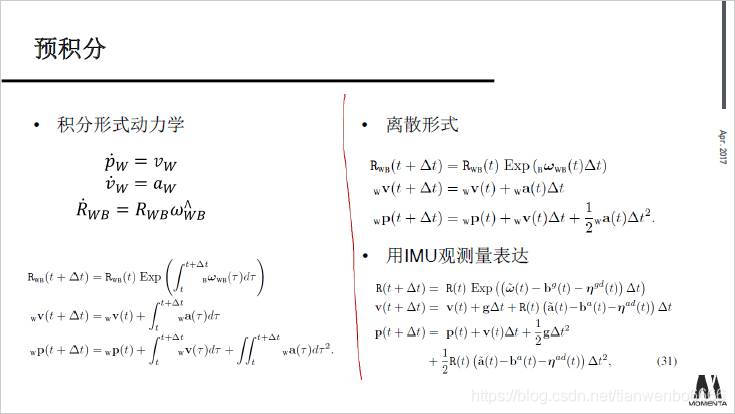 预积分
• 积分形式动力学
ṗ_W = v_W
v̇_W = a_W
Ṙ_WB = R_WB ω^∧_WB
R_WB(t + Δt) = R_WB(t) Exp(∫_t^{t+Δt} _Bω_WB(τ)dτ)
_Wv(t + Δt) = _Wv(t) + ∫_t^{t+Δt} _Wa(τ)dτ
_Wp(t + Δt) = _Wp(t) + ∫_t^{t+Δt} _Wv(τ)dτ + ∬_t^{t+Δt} _Wa(τ)dτ².
• 离散形式
R_WB(t + Δt) = R_WB(t) Exp(_Bω_WB(t)Δt)
_Wv(t + Δt) = _Wv(t) + _Wa(t)Δt
_Wp(t + Δt) = _Wp(t) + _Wv(t)Δt + 1/2 _Wa(t)Δt².
• 用IMU观测量表达
R(t + Δt) = R(t) Exp((ω̃(t) − b^g(t) − η^{gd}(t)) Δt)
v(t + Δt) = v(t) + gΔt + R(t) (ã(t)−b^a(t)−η^{ad}(t)) Δt
p(t + Δt) = p(t) + v(t)Δt + 1/2 gΔt²
+ 1/2 R(t) (ã(t)−b^a(t)−η^{ad}(t)) Δt², (31)
Apr. 2017
MOMENTA